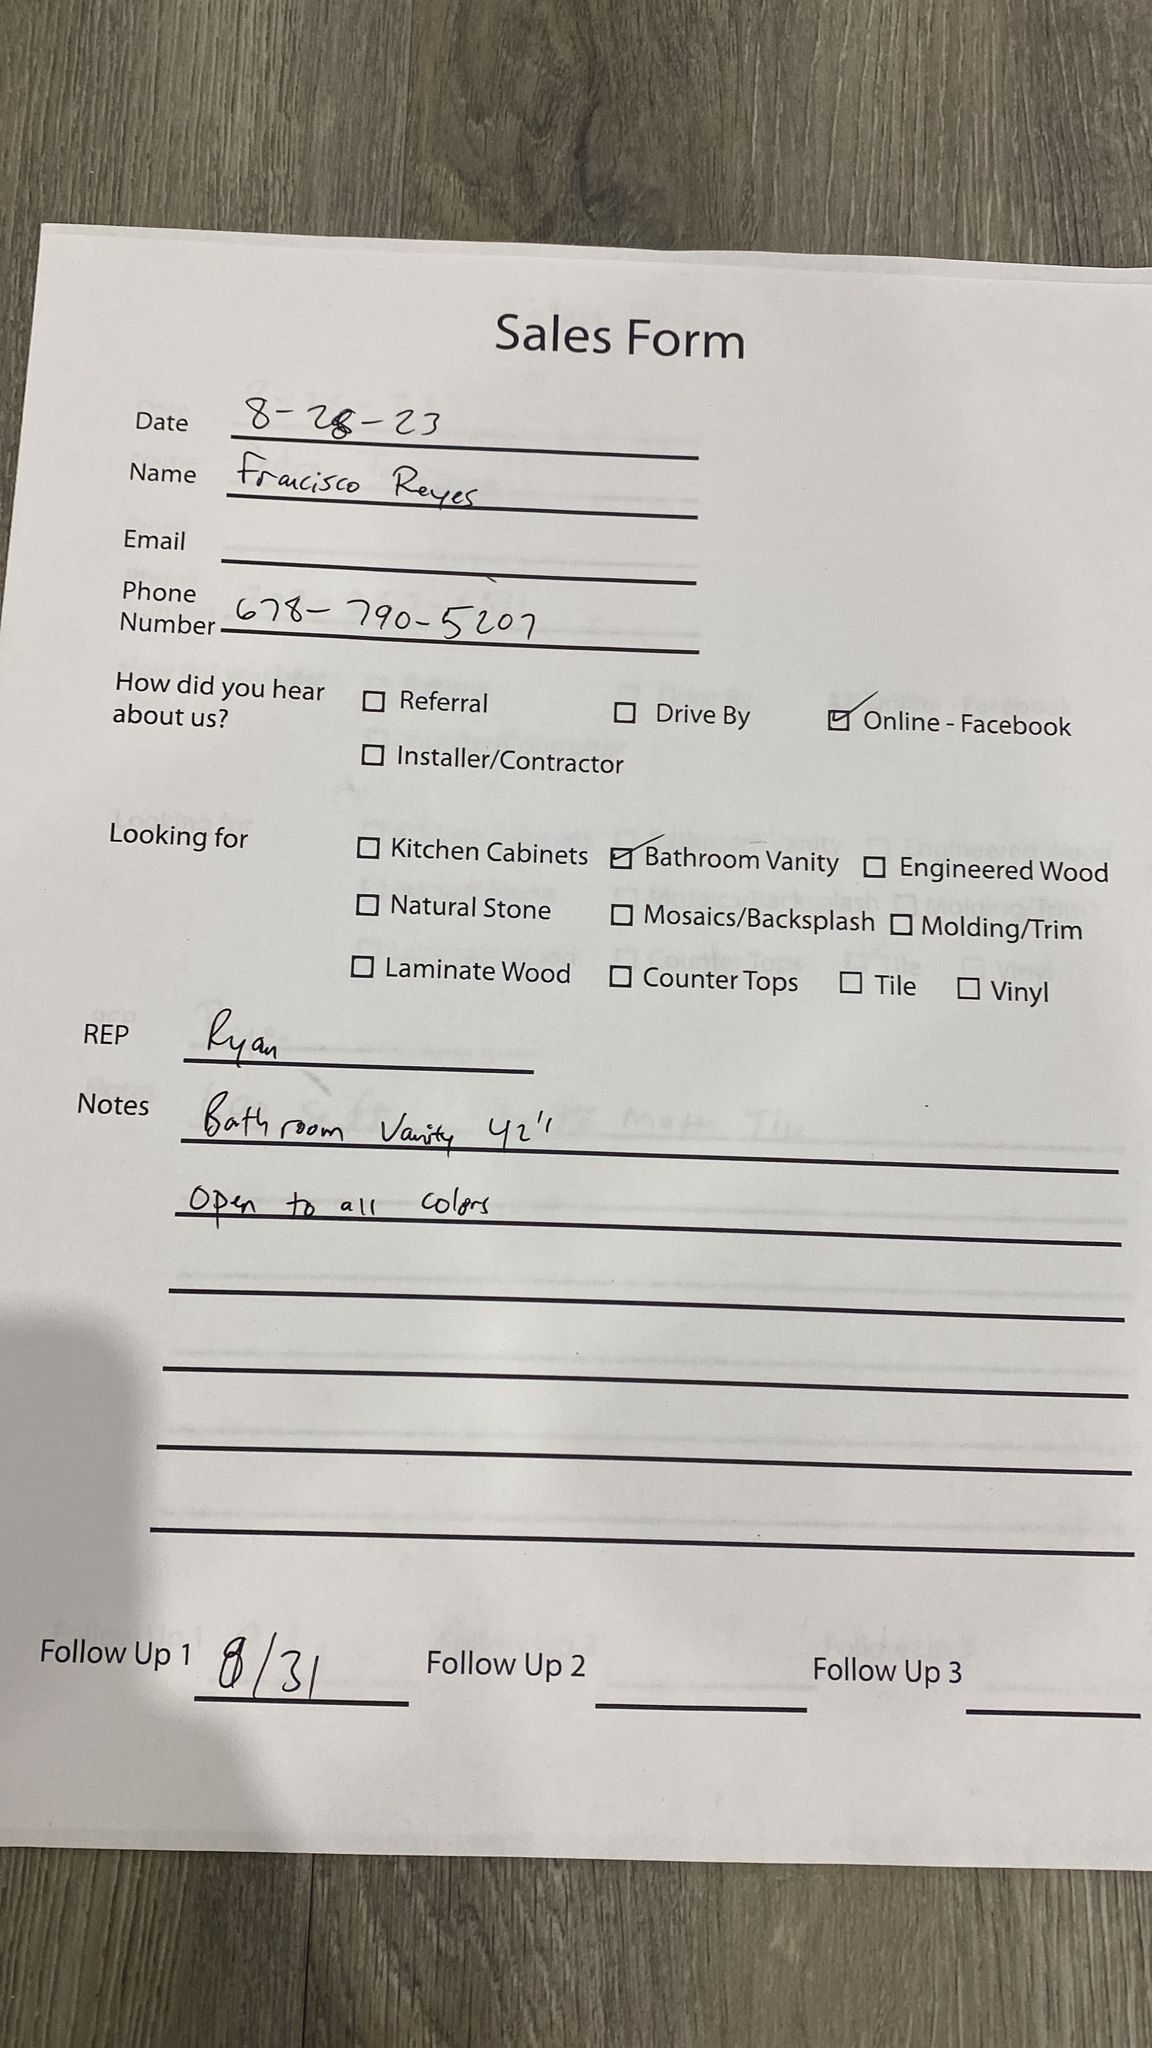 Sales Form
Date 8-28-23
Name Francisco Reyes
Email
Phone Number 678-790-5207
How did you hear about us?
☐ Referral ☐ Drive By ☑ Online - Facebook
☐ Installer/Contractor
Looking for
☐ Kitchen Cabinets ☑ Bathroom Vanity ☐ Engineered Wood
☐ Natural Stone ☐ Mosaics/Backsplash ☐ Molding/Trim
☐ Laminate Wood ☐ Counter Tops ☐ Tile ☐ Vinyl
REP Ryan
Notes Bathroom Vanity 42"
Open to all colors
Follow Up 1 8/31 Follow Up 2 Follow Up 3